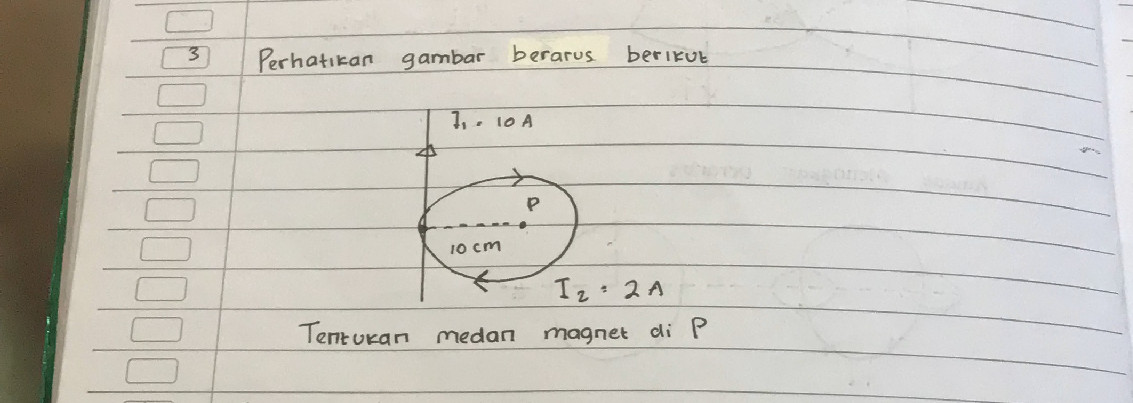 3 Perhatikan gambar berarus berikut
I₁ = 10 A
P
10 cm
I₂ = 2 A
Tentukan medan magnet di P